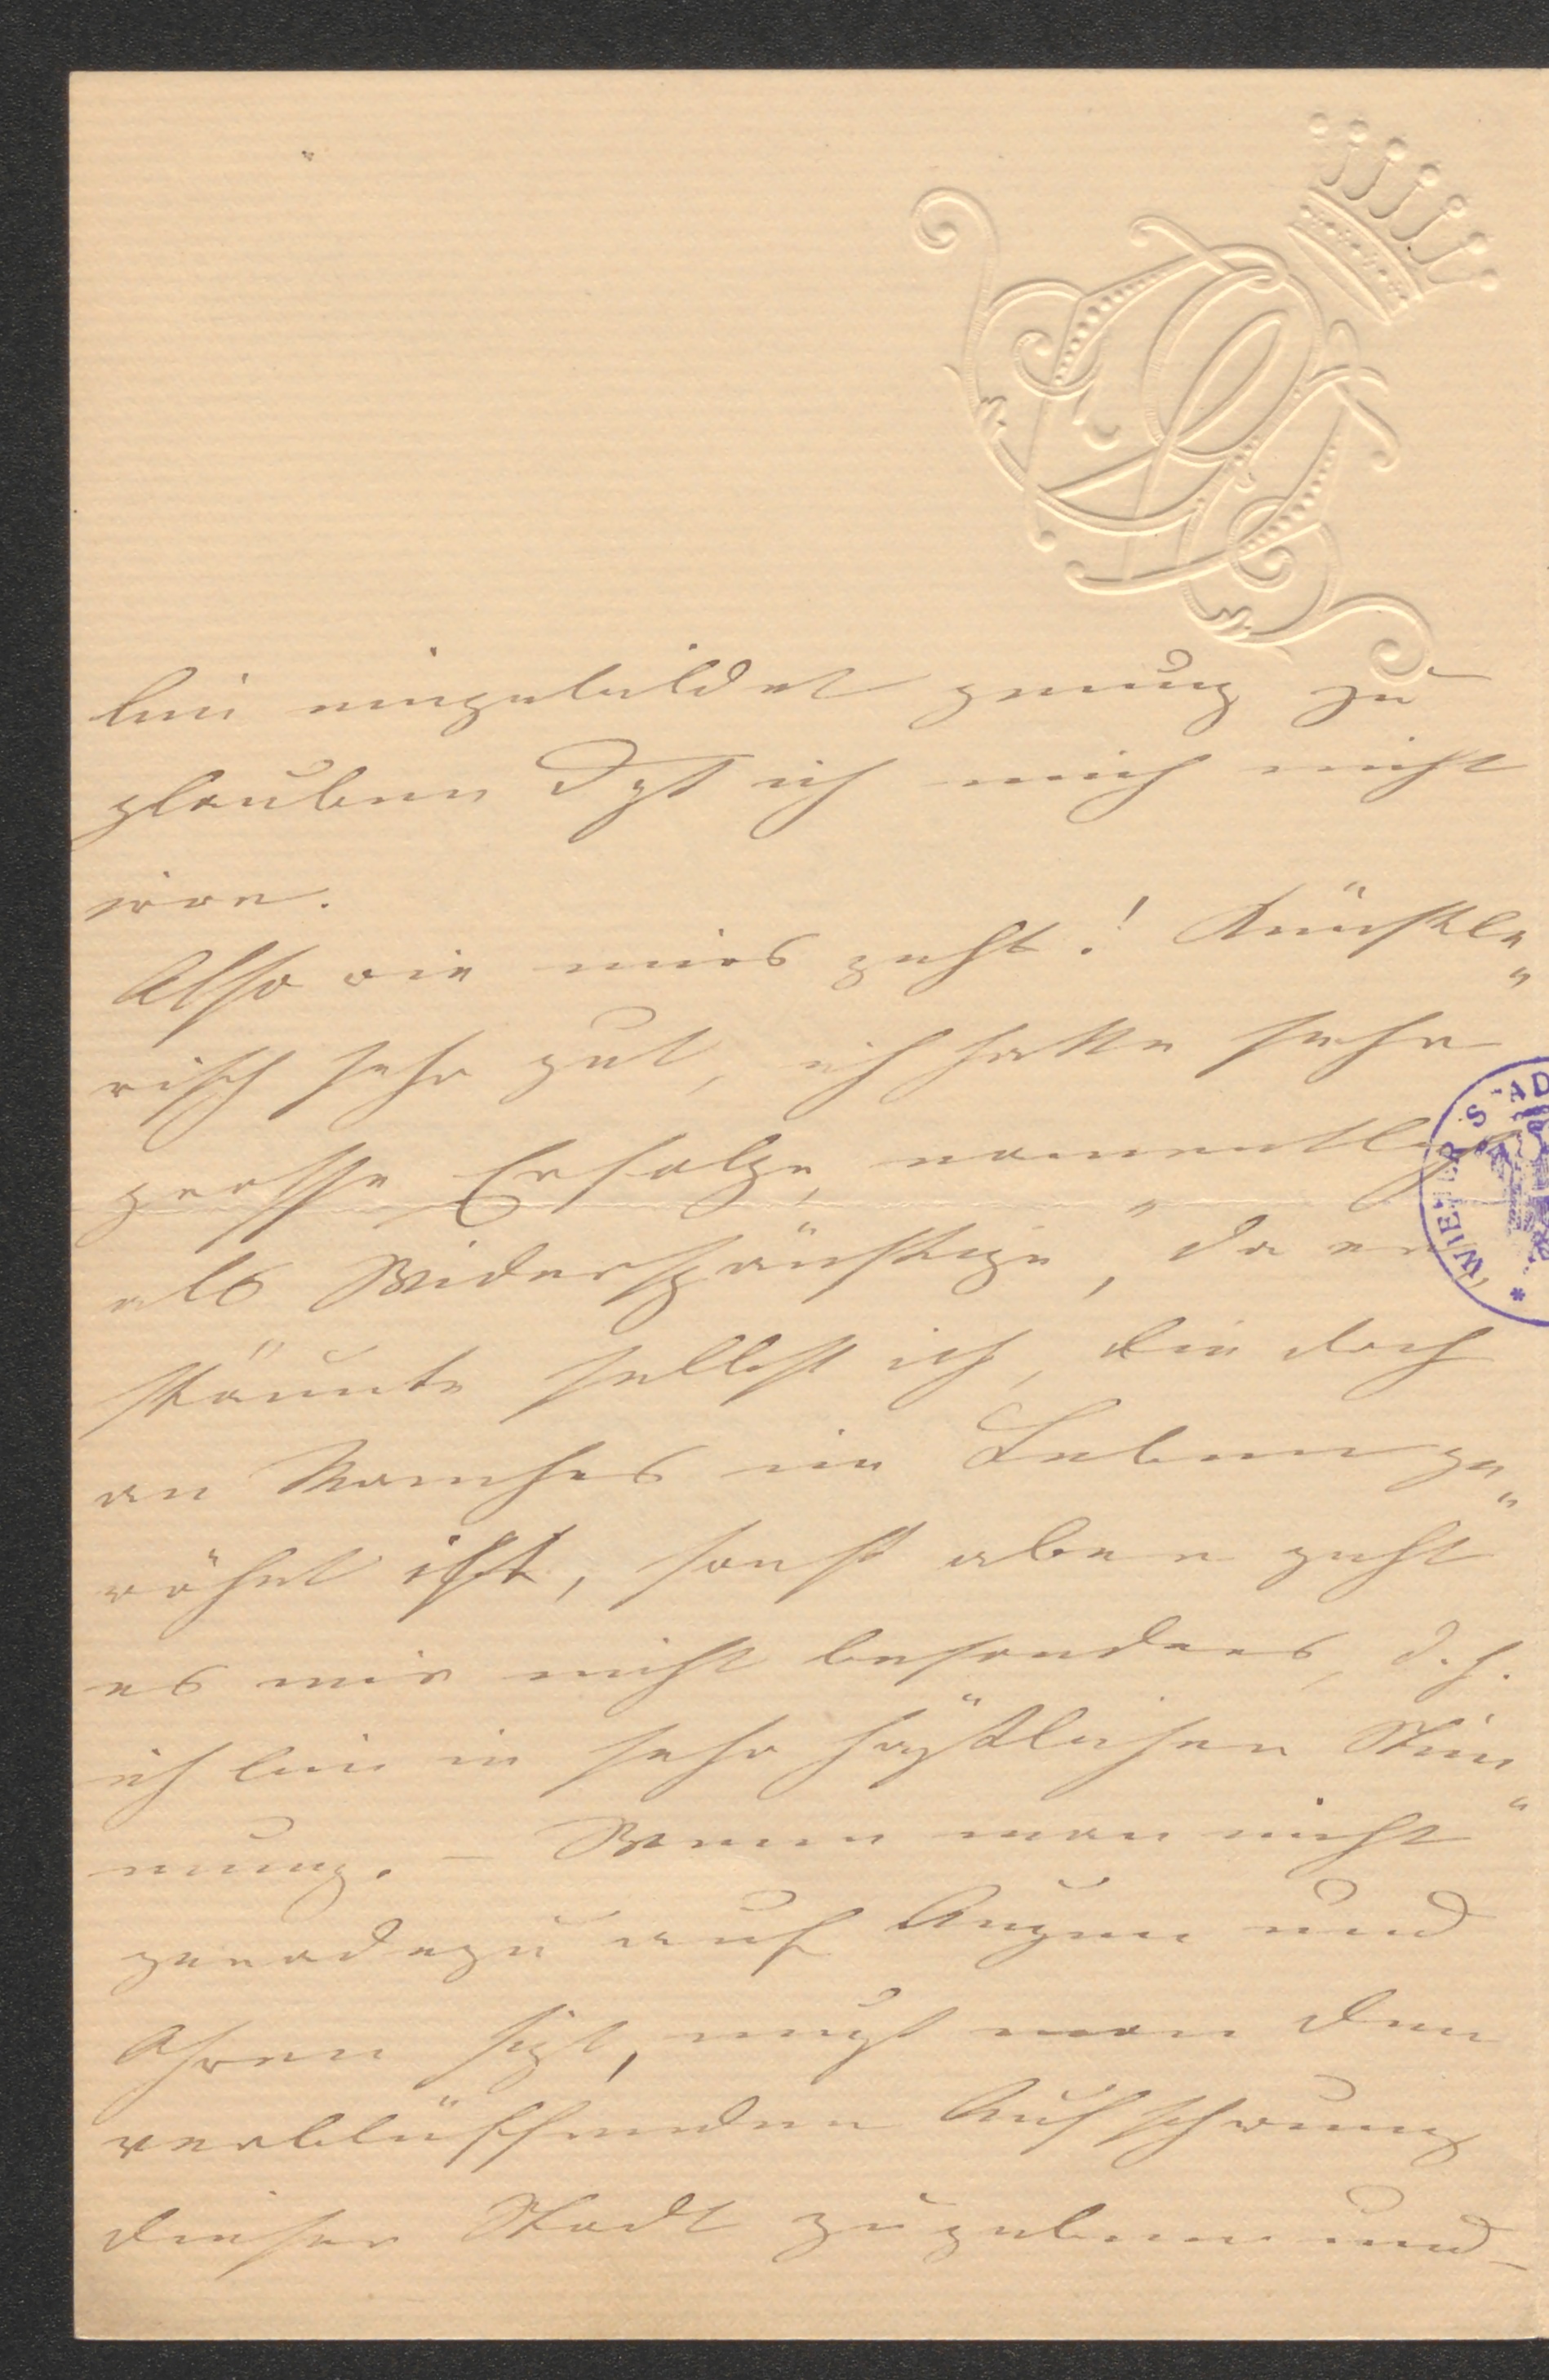 bin eingebildet genug zu
glauben daß ich mich nicht
irre.
Also wie mirs geht! Künstle„
risch sehr gut, ich hatte sehr
grosse Erfolge, namentlich
als Widerspänstige", da er
stäunte sellbst ich, die doch
an Manches im Leben ge„
wöhnt ist, sonst aber geht
es mir nicht besonders, d. h.
ich bin in sehr häßlicher Stim„
mung. – Wenn man nicht
geradezu auf Augen und
Ohren sizt, muß man den
verblüffenden Aufschwung
dieser Stadt zugeben und
WIENER STAD